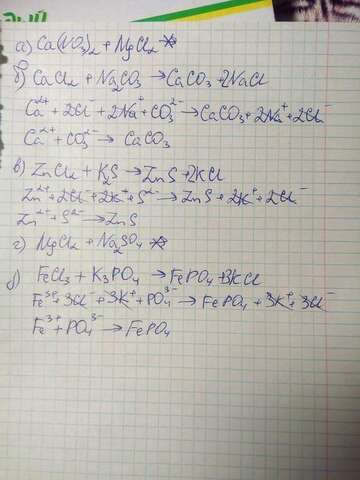 а) Ca(NO₃)₂ + MgCl₂ ↛
б) CaCl₂ + Na₂CO₃ → CaCO₃ + 2NaCl
Ca²⁺ + 2Cl⁻ + 2Na⁺ + CO₃²⁻ → CaCO₃ + 2Na⁺ + 2Cl⁻
Ca²⁺ + CO₃²⁻ → CaCO₃
в) ZnCl₂ + K₂S → ZnS + 2KCl
Zn²⁺ + 2Cl⁻ + 2K⁺ + S²⁻ → ZnS + 2K⁺ + 2Cl⁻
Zn²⁺ + S²⁻ → ZnS
г) MgCl₂ + Na₂SO₄ ↛
д) FeCl₃ + K₃PO₄ → FePO₄ + 3KCl
Fe³⁺ + 3Cl⁻ + 3K⁺ + PO₄³⁻ → FePO₄ + 3K⁺ + 3Cl⁻
Fe³⁺ + PO₄³⁻ → FePO₄